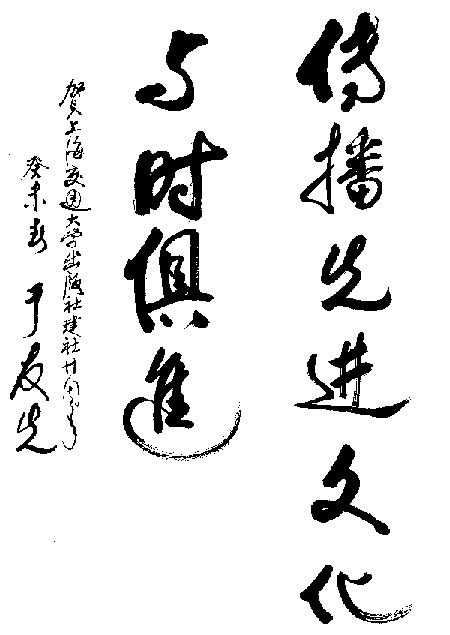 传播先进文化
与时俱進
贺上海交通大学出版社建社廿周年
癸未春 于友先